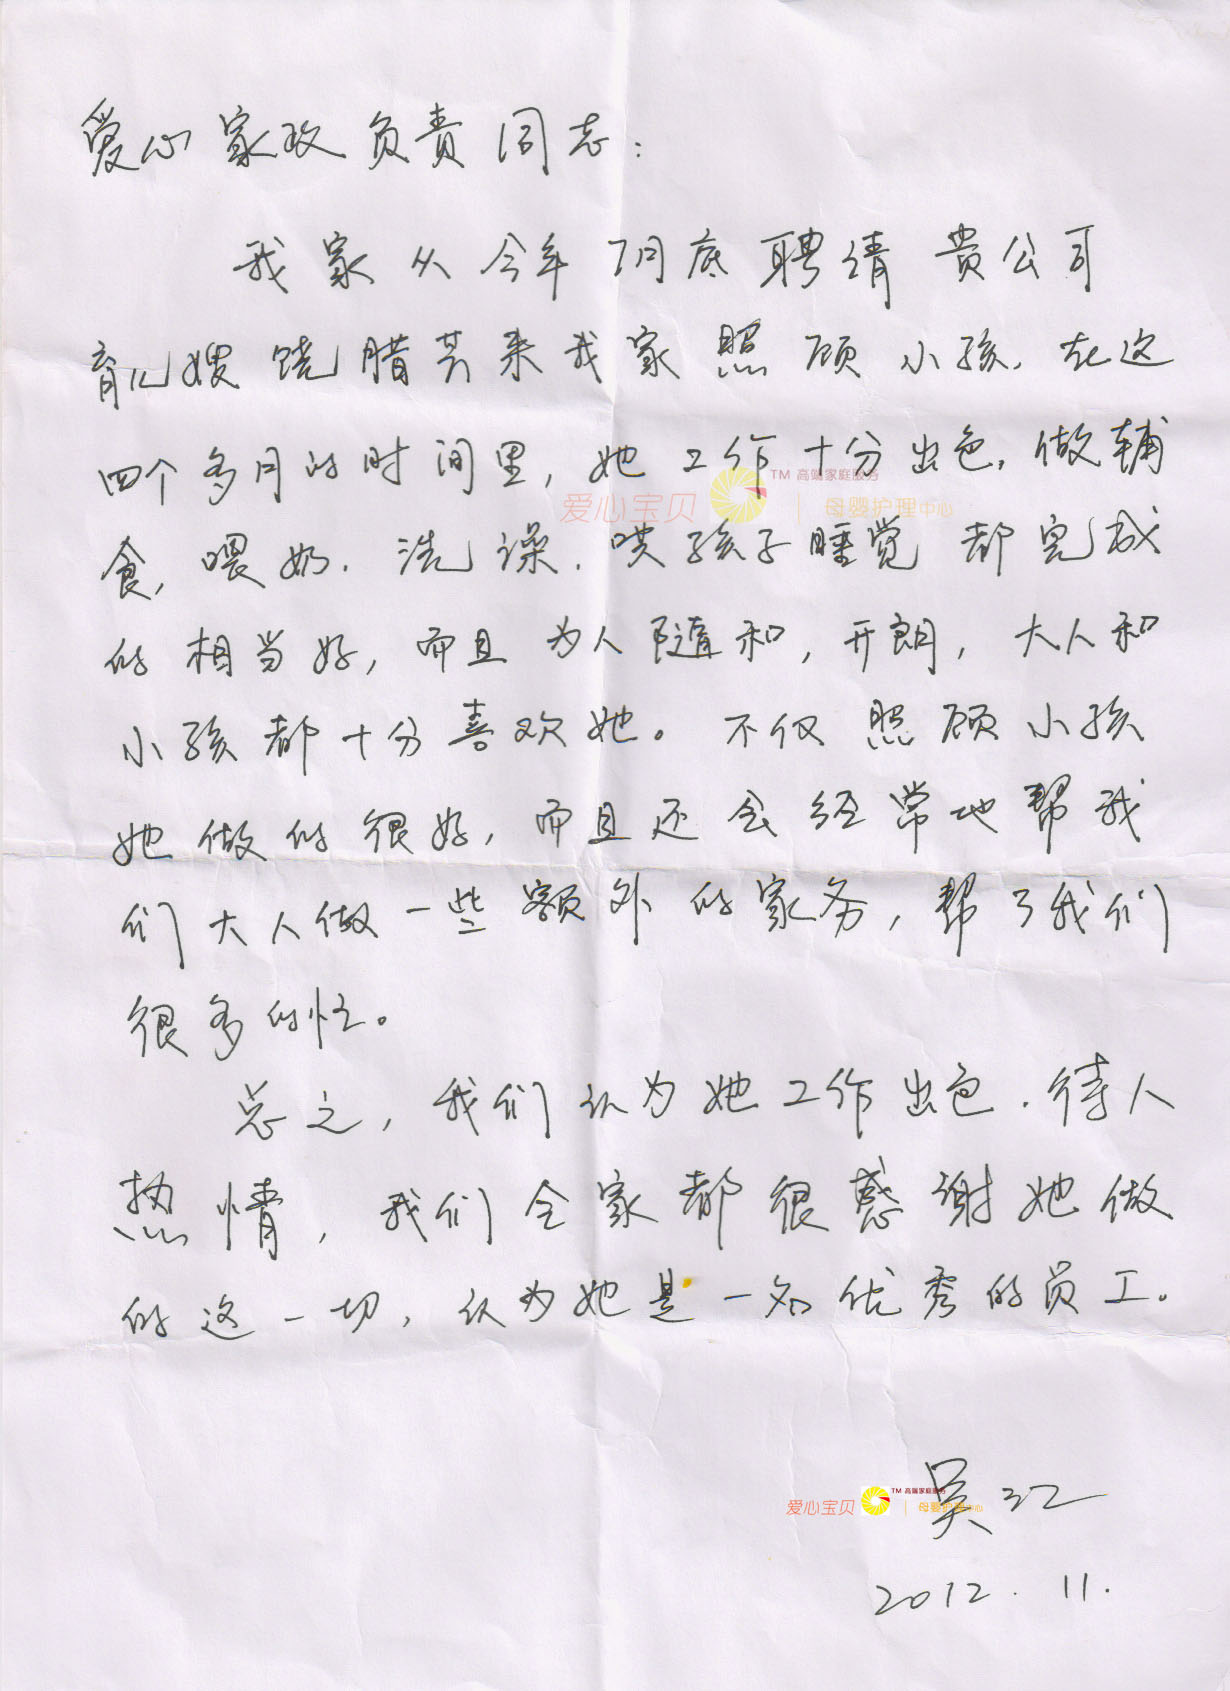 爱心家政负责同志:
我家从今年7月底聘请贵公司
育儿嫂饶腊芳来我家照顾小孩,在这
四个多月的时间里,她工作十分出色,做辅
爱心宝贝 TM 高端家庭服务 母婴护理中心
食,喂奶.洗澡.哄孩子睡觉都完成
的相当好,而且为人随和,开朗,大人和
小孩都十分喜欢她。不仅照顾小孩
她做的很好,而且还会经常地帮我
们大人做一些额外的家务,帮了我们
很多的忙。
总之,我们认为她工作出色.待人
热情,我们全家都很感谢她做
的这一切,认为她是一名优秀的员工。
爱心宝贝 TM 高端家庭服务 母婴护理中心
吴江
2012.11.